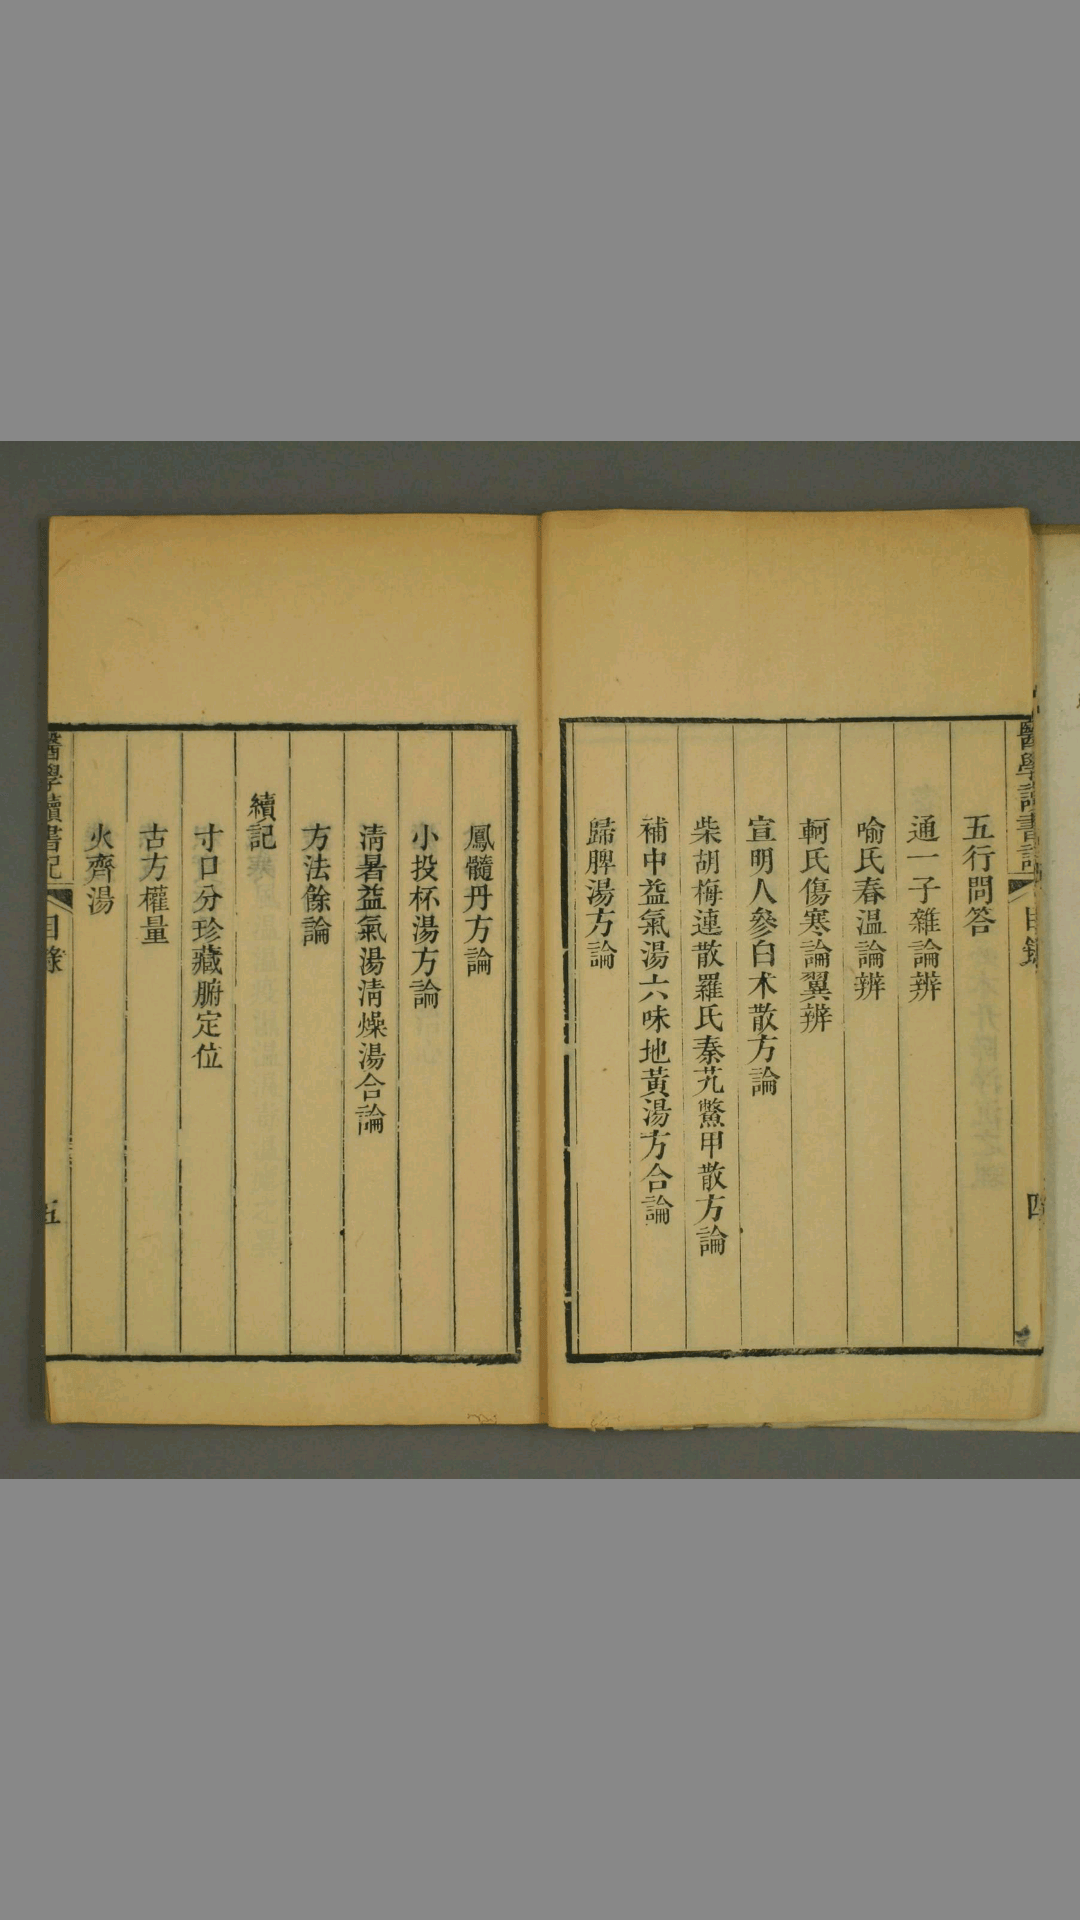 五行問答
通一子雜論辨
喻氏春温論辨
軻氏傷寒論翼辨
宣明人參白朮散方論
柴胡梅連散羅氏秦艽鱉甲散方論
補中益氣湯六味地黃湯方合論
歸脾湯方論
鳳髓丹方論
小投杯湯方論
清暑益氣湯清燥湯合論
方法餘論
續記
寸口分珍藏腑定位
古方權量
火齊湯
醫學讀書記
目錄
五